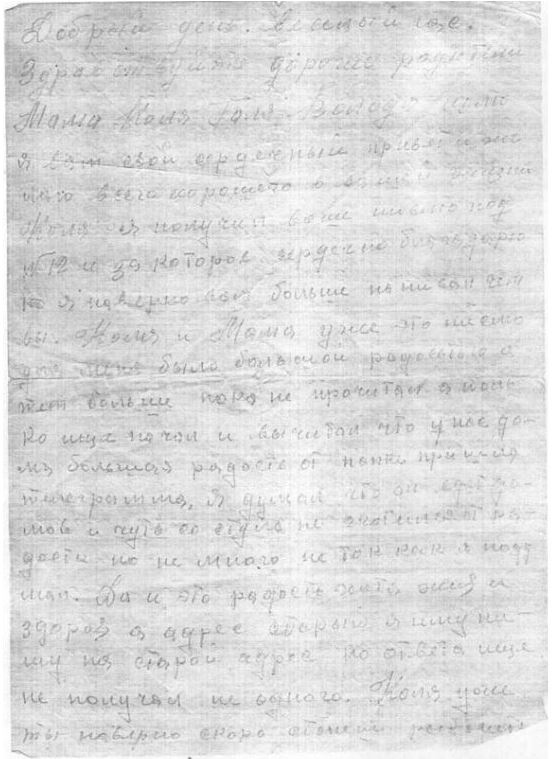 Добрый день. Весёлый час.
Здравствуйте дорогие родители
Мама Коля Галя Володя шлю
я вам свой сердечный привет и же
лаю всего хорошего в вашей жизни
Коля я получил ваше письмо под
№12 и за которое сердечно благодарю
но я наверно вам больше написал чем
вы. Коля и Мама уже это письмо
для меня было большой радостью а
тем больше пока не прочитал а толь
ко ище начал и вычитал что у нас до-
ма большая радость от папки пришла
телеграмма, я думал что он едит до-
мой и чуть со стула не свалился от ра-
дости но не много не так как я поду
мал. Да и это радость хотя жив и
здоров а адрес старый я ему пи-
шу на старой адрес но ответа ище
не получал не одного. Коля уже
ты наверно скоро станеш